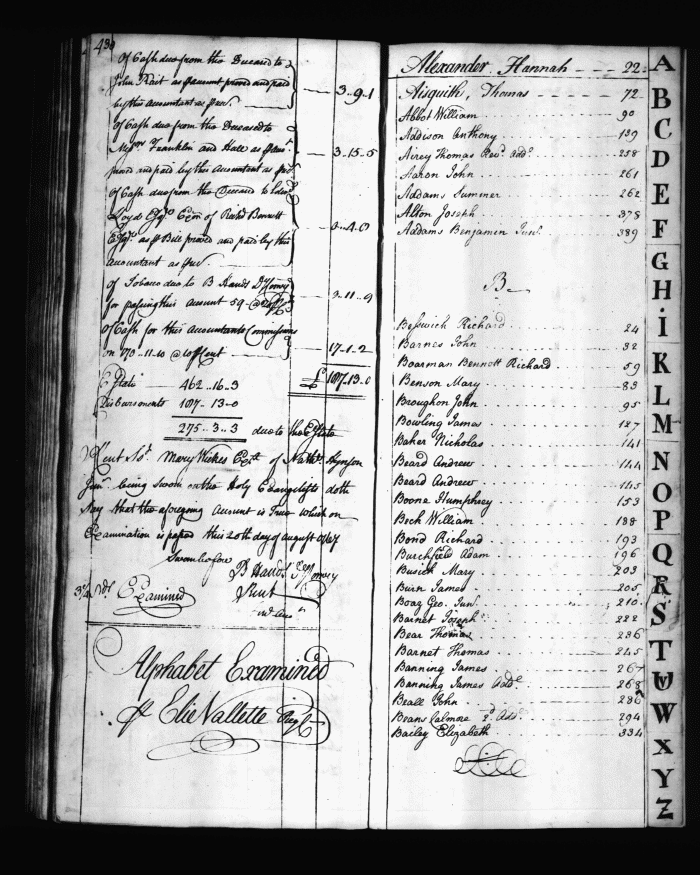 430
of Cash due from the Deceased to
John Rait as account proved and paid
by this Accountant as 3..9..1
of Cash due from the Deceased to
Messrs Franklin and Hall as 3..15..5
proved and paid by this Accountant as
of Cash due from the Deceased to
Loyd Esqr of Richd Bennett
Esqr as Bill proved and paid by this
Accountant as
of Tobacco due to B Hands
for passing this Account 59 2..11..9
of Cash for this Accountants Commissions
on 170..11..10 @ 10 Cent 17..1..2
£ 187..13..0
Estate 462..16..3
Disbursements 187..13..0
275..3..3 due to the Estate
Kent Sct. Mary Wickes of Nathl. Hynson
Junr. being sworn on the Holy Evangelists doth
Say that the aforegoing Account is True which on
Examination is passed this 20th day of August 1767
Sworn before
B Hands
Kent
Examined
Alphabet Examined
Elie Vallette
Alexander Hannah 22
Aisquith, Thomas 72
Abbot William 90
Addison Anthony 139
Airey Thomas Revd. add. 258
Aaron John 261
Addams Sumner 262
Alton Joseph 378
Addams Benjamin Junr. 389
B
Beswick Richard 24
Barnes John 32
Boarman Bennett Richard 59
Benson Mary 83
Broughon John 95
Bowling James 127
Baker Nicholas 141
Beard Andrew 144
Beard Andrew 145
Boone Humphrey 153
Beck William 188
Bond Richard 193
Burchfield Adam 196
Busick Mary 203
Burn James 205
Boag Geo. Junr. 210
Barnet Joseph 222
Bear Thomas 236
Barnet Thomas 245
Banning James 267
Banning James Addl. 268
Beall John 286
Beans Colmore 2d. Addl. 294
Bailey Elizabeth 334
A
B
C
D
E
F
G
H
I
K
L
M
N
O
P
Q
R
S
T
W
X
Y
Z